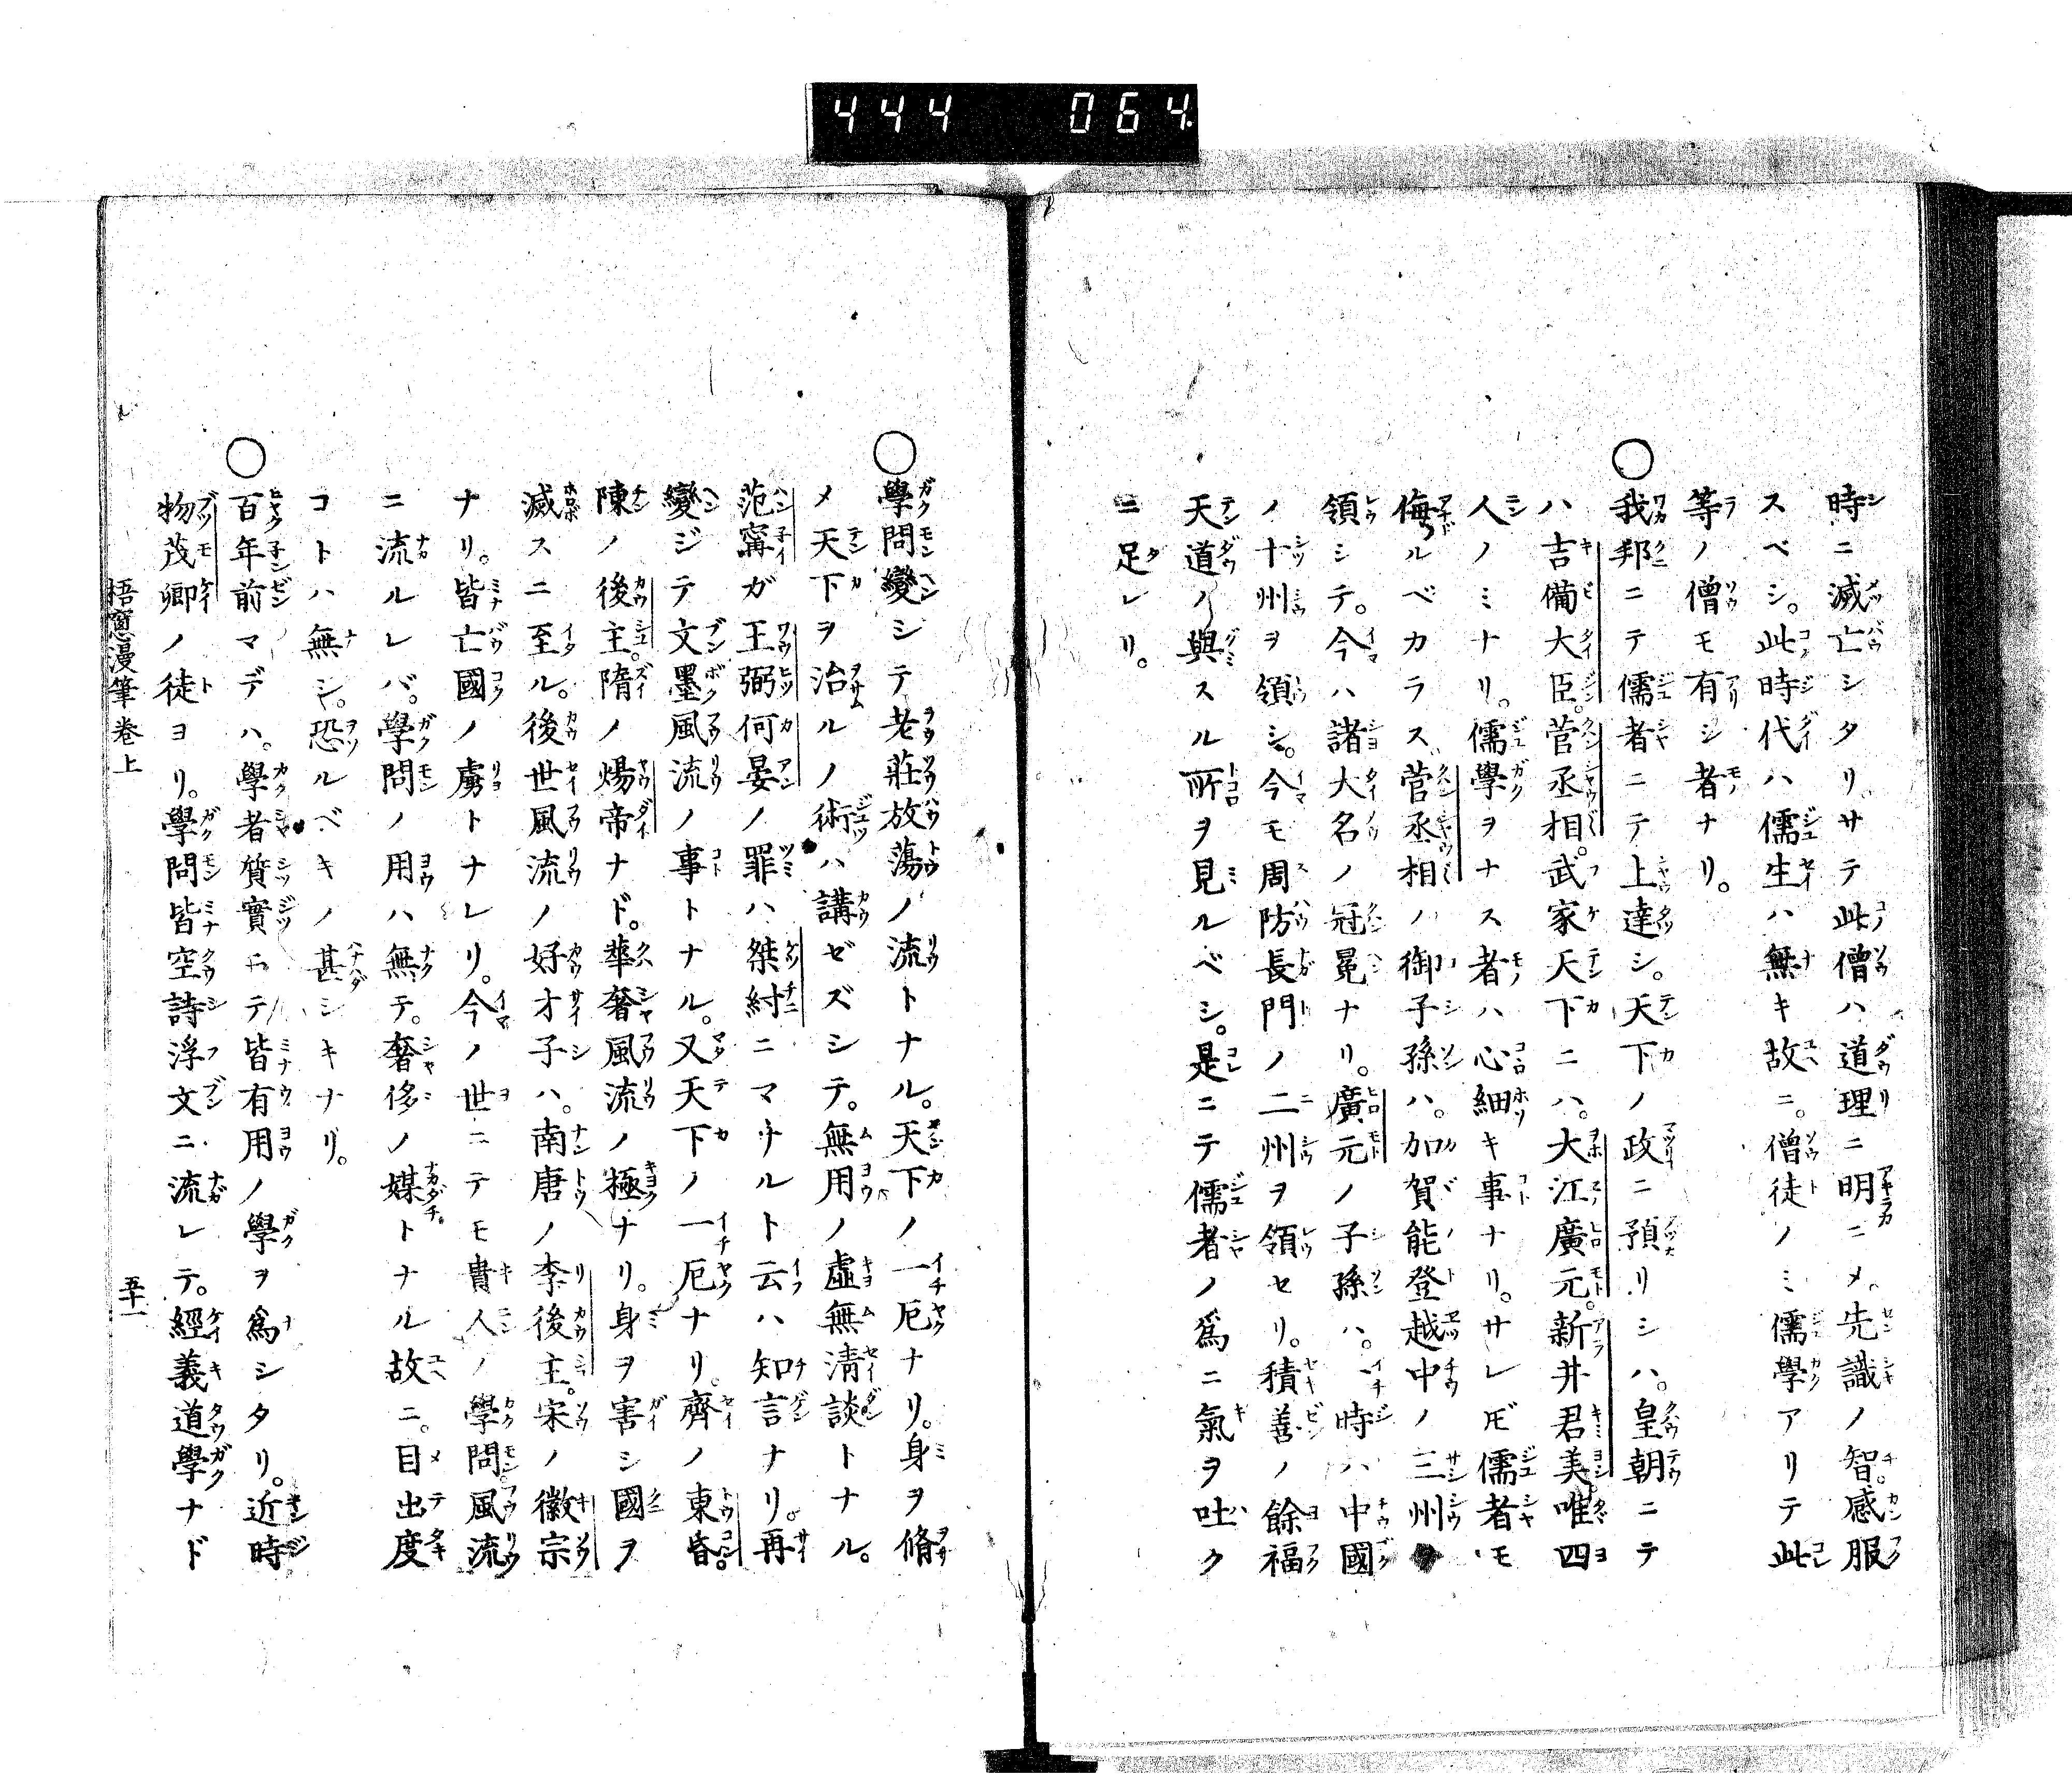 444 064
時ニ滅亡シタリサテ此僧ハ道理ニ明ニメ先識ノ智感服
スベシ。此時代ハ儒生ハ無キ故ニ。僧徒ノミ儒學アリテ此
等ノ僧モ有シ者ナリ。
○我邦ニテ儒者ニテ上達シ。天下ノ政ニ預リシハ。皇朝ニテ
ハ吉備大臣。菅丞相。武家天下ニハ。大江廣元。新井君美。唯四
人ノミナリ。儒學ヲナス者ハ心細キ事ナリ。サレ𪜈儒者モ
侮ルベカラズ菅丞相ノ御子孫ハ。加賀能登越中ノ三州
領シテ。今ハ諸大名ノ冠冕ナリ。廣元ノ子孫ハ。一時ハ中國
ノ十州ヲ領シ。今モ周防長門ノ二州ヲ領セリ。積善ノ餘福
天道ノ與スル所ヲ見ルベシ。是ニテ儒者ノ爲ニ氣ヲ吐ク
ニ足レリ。
○學問變シテ老莊放蕩ノ流トナル。天下ノ一厄ナリ。身ヲ脩
メ天下ヲ治ルノ術ハ講ゼズシテ。無用ノ虛無淸談トナル。
范甯ガ王弼何晏ノ罪ハ桀紂ニマサルト云ハ知言ナリ。再
變ジテ文墨風流ノ事トナル。又天下ノ一厄ナリ。齊ノ東昏。
陳ノ後主。隋ノ煬帝ナド。華奢風流ノ極ナリ。身ヲ害シ國ヲ
滅スニ至ル。後世風流ノ好才子ハ。南唐ノ李後主。宋ノ徽宗
ナリ。皆亡國ノ虜トナレリ。今ノ世ニテモ貴人ノ學問風流
ニ流ルレバ。學問ノ用ハ無テ。奢侈ノ媒トナル故ニ。目出度
コトハ無シ。恐ルベキノ甚シキナリ。
○百年前マデハ。學者質實ニテ皆有用ノ學ヲ爲シタリ。近時
物茂卿ノ徒ヨリ。學問皆空詩浮文ニ流レテ。經義道學ナド
梧窻漫筆卷上 五十一